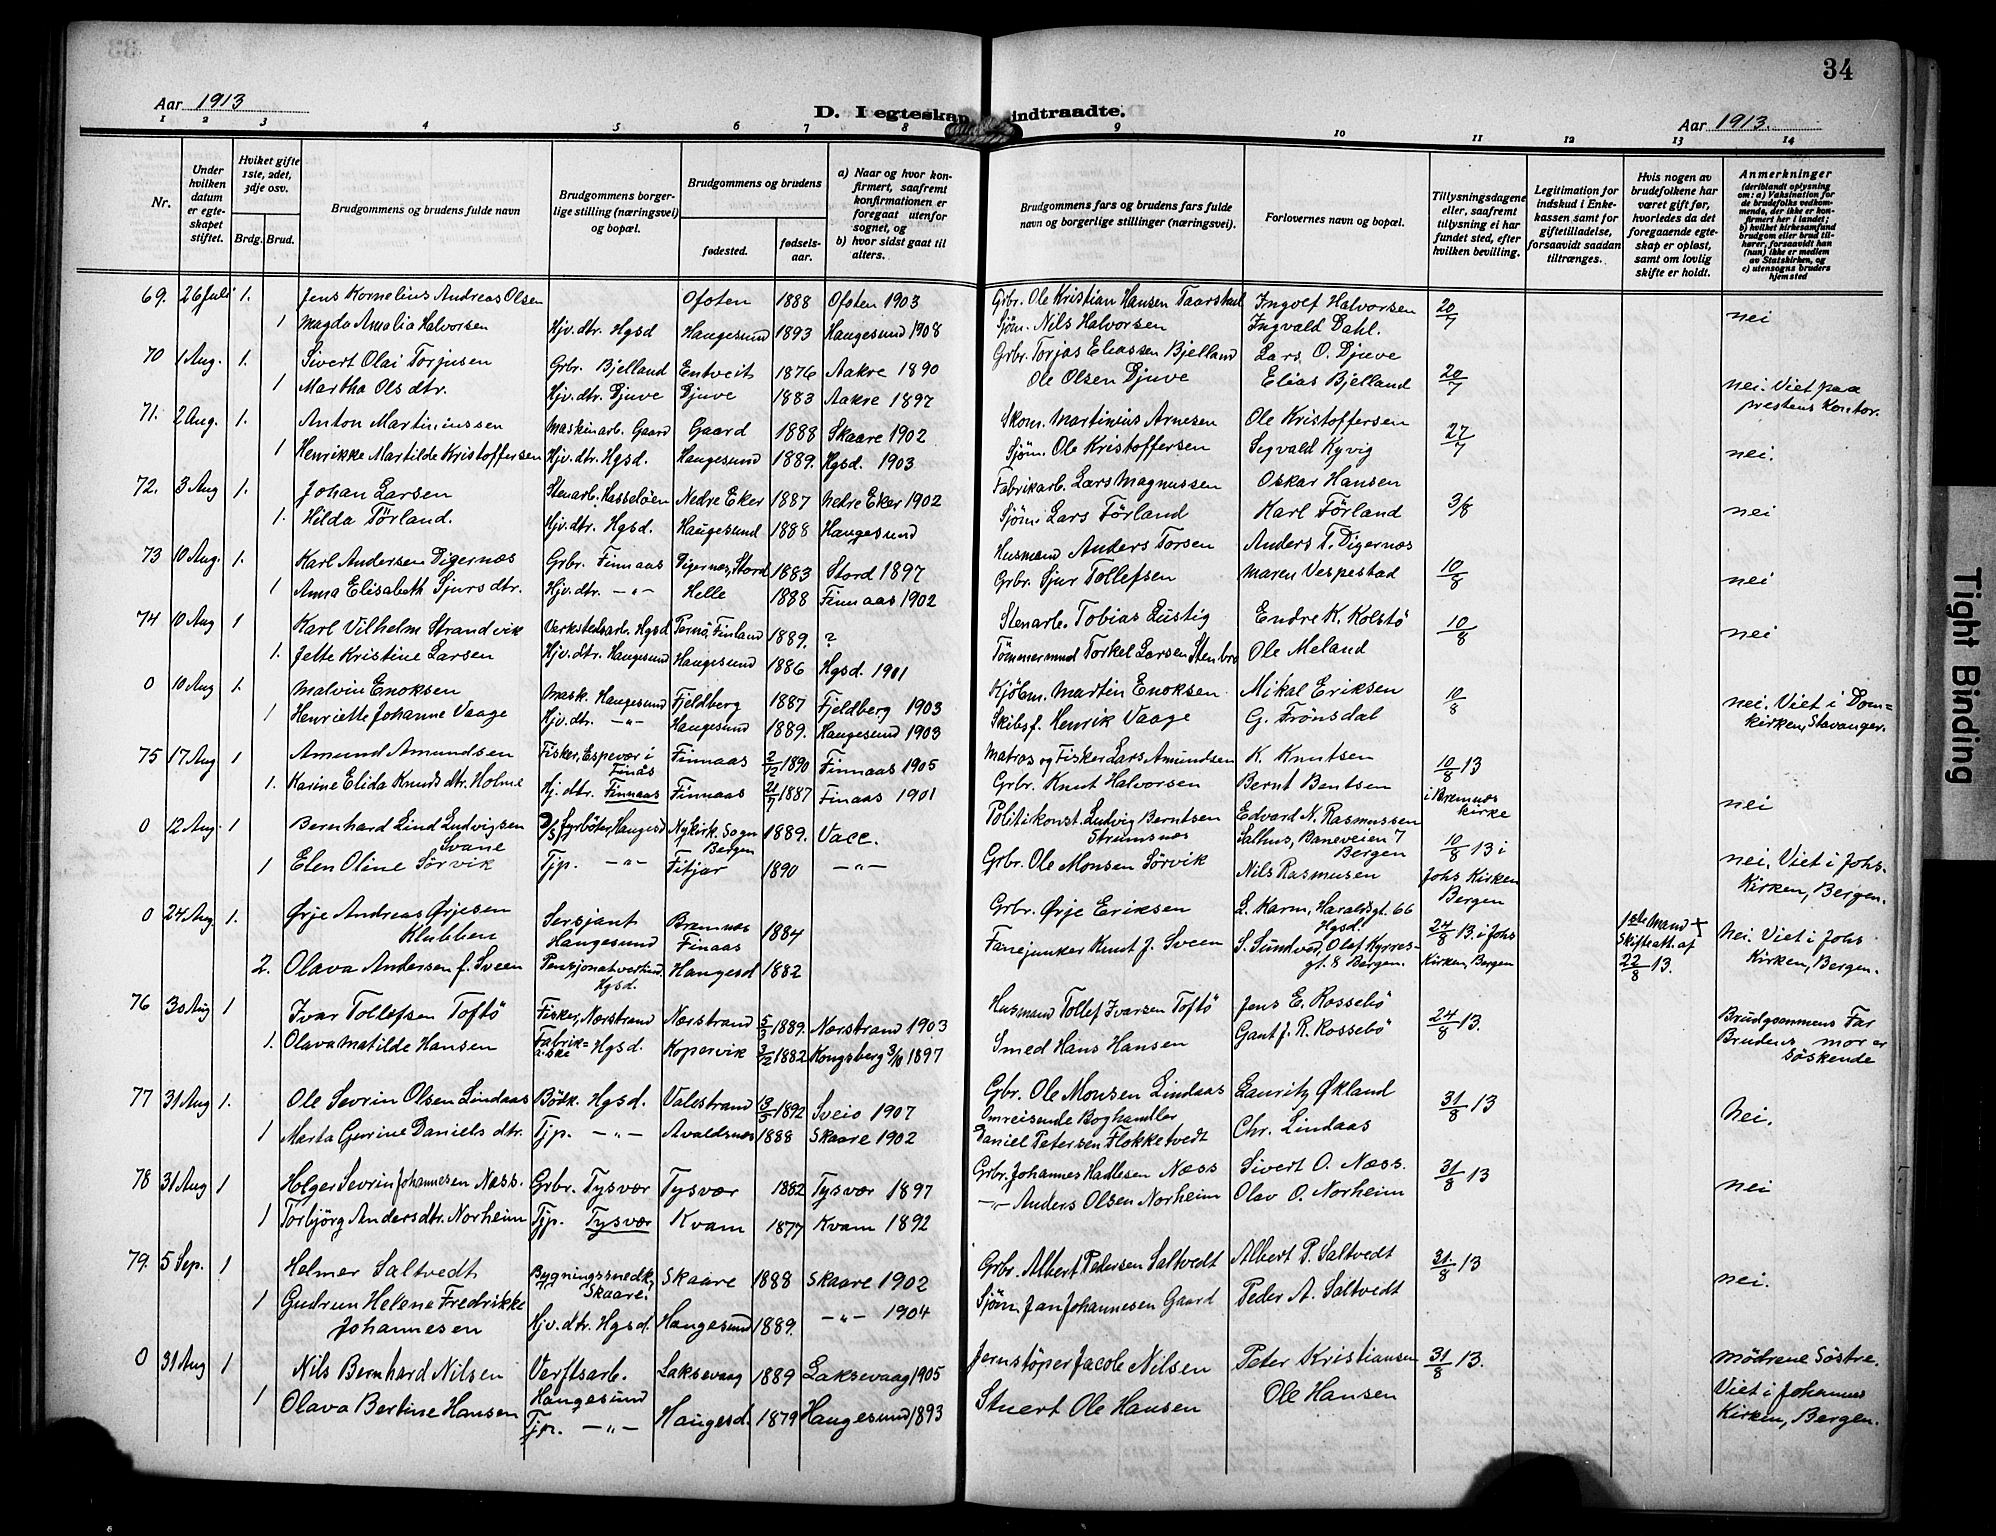 34
Aar 1913
D. I egteskap indtraadte.
Aar 1913.
1 2 3 4 5 6 7 8 9 10 11 12 13 14
Nr.
Under hvilken datum er egteskapet stiftet.
Hviket gifte 1ste, 2det, 3dje osv.
Brdg. Brud.
Brudgommens og brudens fulde navn
Brudgommens borgerlige stilling (næringsvei) og bopæl.
Brudgommens og brudens
fødested.
fødselsaar.
a) Naar og hvor konfirmert, saafremt konfirmationen er foregaat utenfor sognet, og
b) hvor sidst gaat til alters.
Brudgommens fars og brudens fars fulde navn og borgerlige stillinger (næringsvei).
Forlovernes navn og bopæl.
Tillysningsdagene eller, saafremt tillysning ei har fundet sted, efter hvilken bevilling.
Legitimation for indskud i Enkekassen samt for giftetilladelse, forsaavidt saadan tiltrænges.
Hvis nogen av brudefolkene har været gift før, hvorledes da det foregaaende egteskap er opløst, samt om lovlig skifte er holdt.
Anmerkninger
(deriblandt oplysning om: a) Vaksination for de brudefolks vedkommende, der ikke er konfirmert her i landet; b) hvilket kirkesamfund brudgom eller brud tilhører, forsaavidt han (hun) ikke er medlem av Statskirken, og c) utensogns bruders hjemsted
69. 26 Juli 1. Jens Kornelius Andreas Olsen Ofoten 1888 Ofoten 1903 Grbr. Ole Kristian Hansen Ingvolf Halvorsen 20/7 nei
1 Magda Amalia Halvorsen Hjv. dtr. Hgsd Haugesund 1893 Haugesund 1908 Sjøm. Nils Halvorsen Ingvald Dahl.
70 1 Aug. 1. Sivert Olai Torjusen Grbr. Bjelland Entveit 1876 Aakre 1890 Grbr. Torjas Eliassen Bjelland Lars O. Djuve 20/7 nei. Viet paa
1 Martha Olsdtr. Hjv. dtr. Djuve Djuve 1883 Aakre 1897 Ole Olsen Djuve Elias Bjelland prestens kontor.
71. 2 Aug. 1. Anton Martiniussen Maskinarb. Gaard Gaard 1888 Skaare 1902 Skom. Martinius Arnesen Ole Kristoffersen 27/7 nei.
1 Henrikke Martilde Kristoffersen Hjv. dtr. Hgsd. Haugesund 1889. Hgsd. 1903 Sjøm. Ole Kristoffersen Sigvald Kyvig
72. 3 Aug 1. Johan Larsen Stenarb. Hasseløen Nedre Eker 1887 Nedre Eker 1902 Fabrikarb. Lars Magnussen Oskar Hansen 3/8 nei
1. Hilda Tørland. Hjv. dtr. Hgsd. Haugesund 1888 Haugesund Sjøm. Lars Førland Karl Förland
73 10 Aug. 1. Karl Andersen Digernæs Grbr. Finnaas Digernæs, Stord 1883 Stord 1897 Husmand Anders Torsen Anders T. Digernæs 10/8 nei
1 Anna Elisabeth Sjursdtr. Hjv. dtr. -"- Helle 1888 Finnaas 1902 Grbr. Sjur Tollefsen Maren Vespestad
74 10 Aug 1 Karl Vilhelm Strandvik Verkstedsarb. Hgsd Pernö, Finland 1889. ? Stenarb. Tobias Lustig Endre K. Kolstø 10/8 nei
1. Jette Kristine Larsen Hjv. dtr. Haugesund Haugesund 1886 Hgsd. 1901 Tömmermand Torkel Larsen Stenbro Ole Meland
0 10 Aug 1. Malvin Enoksen Mask. Haugesund Fjeldberg 1887 Fjeldberg 1903 Kjöbm. Martin Enoksen Mikal Eriksen 10/8 nei. Viet i Dom=
1 Henriette Johanne Vaage Hjv. dtr. -"- Haugesund 1889. Haugesund 1903 Skibsf. Henrik Vaage G. Frönsdal kirken, Stavanger.
75 17 Aug 1 Amund Amundsen Fisker, Espevær i Finås Finnaas 2/12 1890 Finnaas 1905 Matros og Fisker Lars Amundsen K. Knutsen 10/8 13
1. Karine Elida Knuds dtr. Holme Hj. dtr. Finnaas Finnaas 21/7 1887 Finaas 1901 Grbr. Knut Halvorsen Bernt Bentsen i Bremnes kirke nei
0 12 Aug. 1 Bernhard Lind Ludvigsen Svane D/S fyrböter, Haugesd Nykirk. Sogn Bergen 1889. Vacc. Politikonst. Ludvig Berntsen Strømsnæs Edvard N. Rasmussen Salhus, Baneveien 7 Bergen 10/8 13 i
1 Elen Oline Sørvik Tjp. -"- Fitjar 1890 -"- Grbr. Ole Monsen Sørvik Nils Rasmusen Johs Kirken Bergen nei. Viet i Johs. Kirken, Bergen.
0 24 Aug. 1. Ørje Andreas Ørjesen Klubben Sersjant Haugesund Bremnes Finaas 1884 Grbr. Ørje Eriksen L. Karm, Haraldsgt. 66 Hgsd. 24/8 13. i Johs Kirken, Bergen 1ste Mand + Skifteatt. af 22/8 13. Nei. Viet i Johs Kirken, Bergen.
2. Olava Andersen f. Sveen Pensjonatværtind. Hgsd. Haugesd 1882 Fanejunker Knut J. Sveen S. Sundvor, Olaf Kyrresgt. 8 Bergen.
76 30 Aug 1 Ivar Tollefsen Toftö Fisker, Nærstrand Nærstrand 5/3 1889. Nærstrand 1903 Husmand Tollef Ivarsen Toftö Jens E. Rossebö 24/8 13. Brudgommens Far
1. Olava Matilde Hansen Fabrik=arb.ske Hgsd. Kopervik 3/2 1882 Kongsberg 3/10 1897 Smed Hans Hansen Gant J. R. Rossebö Brudens mor er Söskende
77 31 Aug 1. Ole Sevrin Olsen Lindaas Bödk. Hgsd. Valestrand 13/5 1892 Sveio 1907 Grbr. Ole Monsen Lindaas Lauritz Økland 31/8 13 Nei.
1 Marta Gurine Daniels dtr. Tjp. -"- Avaldsnes 1888 Skaare 1902 Omreisende Boghandler Daniel Petersen Flokketvedt Chr. Lindaas
78 31 Aug 1 Holger Sevrin Johannesen Næss. Grbr. Tysvær Tysvær 1882 Tysvær 1897 Grbr. Johannes Hadlesen Næss Sivert O. Næss. 31/8 13 nei
1 Torbjörg Andersdtr. Norheim Tjp. Tysvær Kvam 1877 Kvam 1892 -"- Anders Olsen Norheim Olav O. Norheim
79. 5 Sep. 1 Helmer Saltvedt Bygningssnedk. Skaare. Skaare 1888 Skaare 1902 Grbr. Albert Pedersen Saltvedt Albert P. Saltvedt 31/8 13 nei.
1 Gudrun Helene Fredrikke Johannesen Hjv. dtr. Hgsd. Haugesund 1889. -"- 1904 Sjøm. Jan Johannesen Gaard Peder A. Saltvedt
0 31 Aug 1 Nils Bernhard Nilsen Verftsarb. Haugesund Laksevaag 1889 Laksevaag 1905 Jernstöper Jacob Nilsen Peter Kristiansen 31/8 13. Mödrene Söstre.
1 Olava Bertine Hansen Tjp. -"- Haugesd. 1879 Haugesund 1893 Stuert Ole Hansen Ole Hansen Viet i Johannes Kirken, Bergen.
Tight Binding